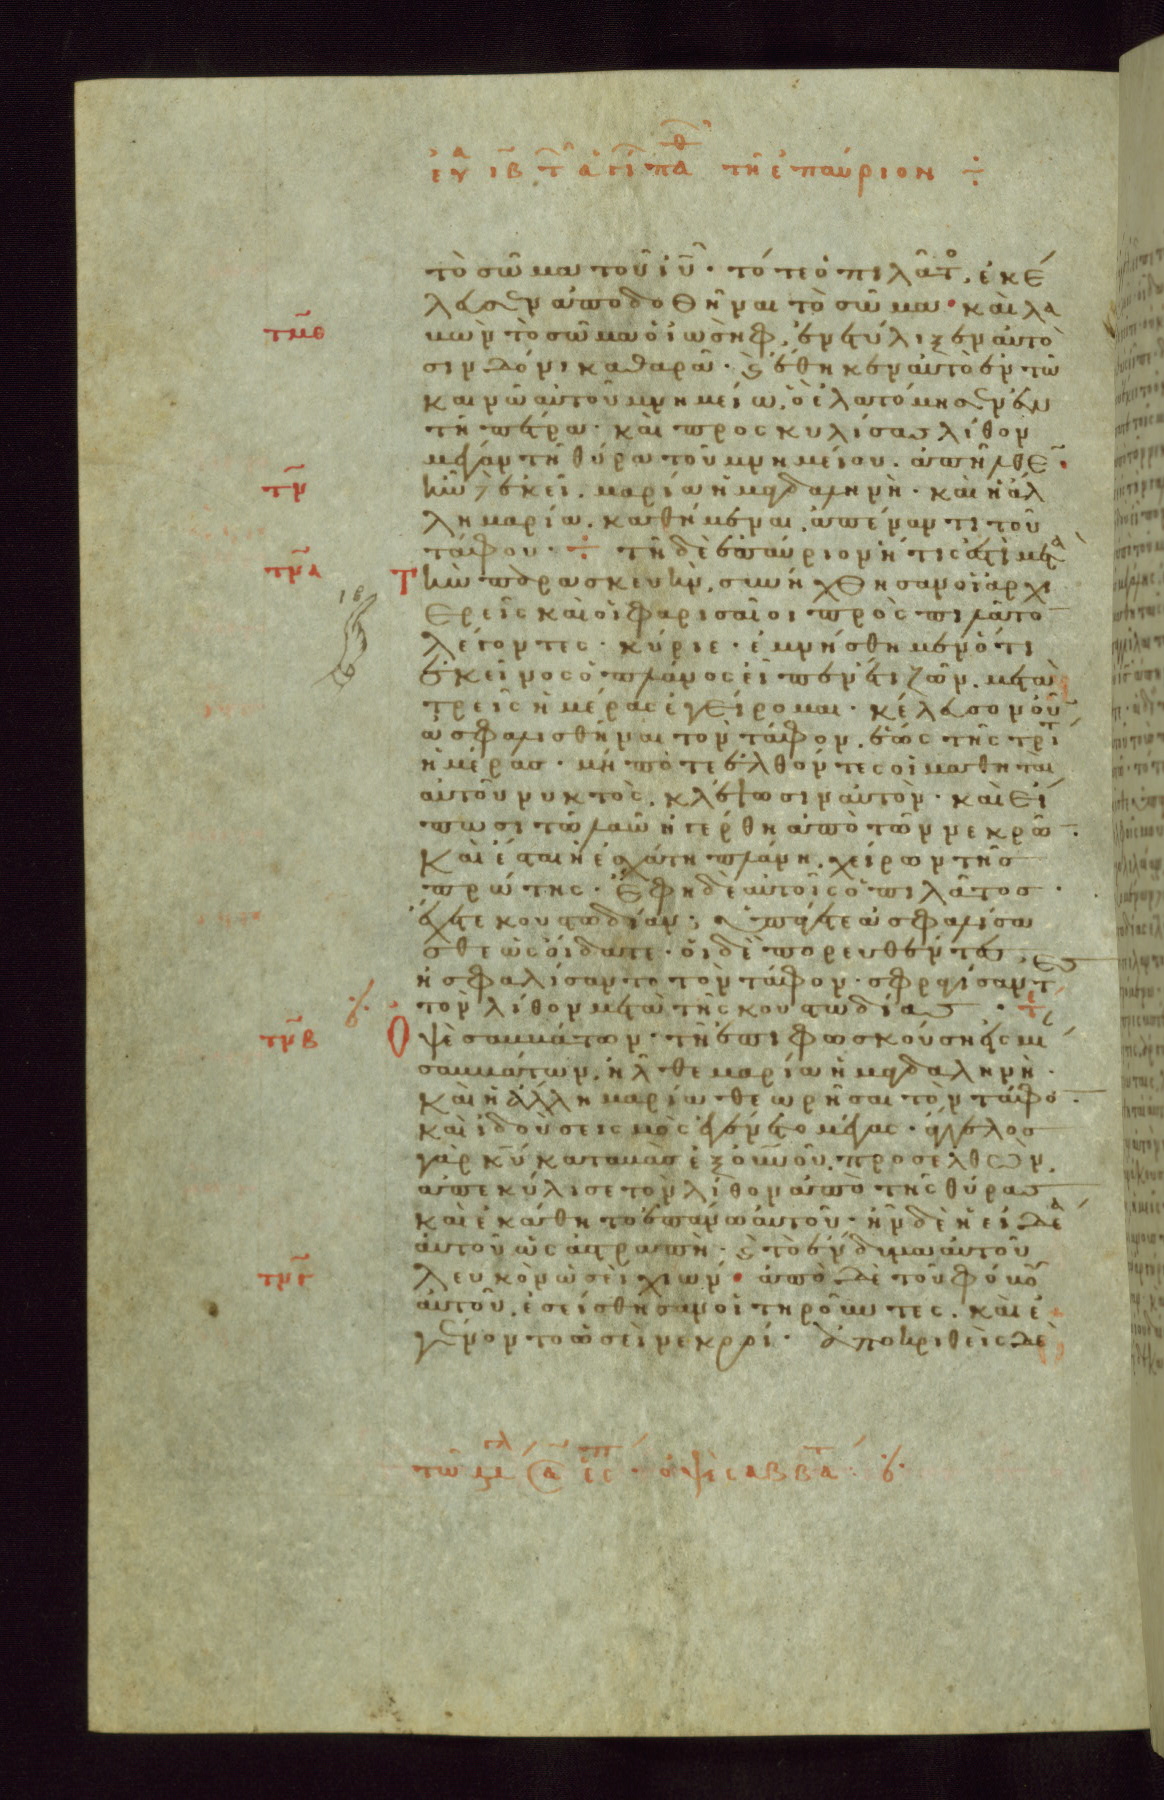 τῇ ἐπαύριον ÷
τὸ σῶμα τοῦ ἰῦ · τότε ὁ πιλᾶτο, ἐκέ
λευσεν ἀποδοθῆναι τὸ σῶμα · καὶ λα
τμθ
βὼν τὸ σῶμα ὁ ἰωσὴφ, ἐνετύλιξεν αὐτὸ
σινδόνι καθαρᾷ · καὶ ἔθηκεν αὐτὸ ἐν τῷ
καινῷ αὐτοῦ μνημείῳ, ὃ ἐλατόμησεν ἐν
τῇ πέτρᾳ · καὶ προσκυλίσας λίθον
μέγαν τῇ θύρᾳ τοῦ μνημείου, ἀπῆλθε ·
τν
ἦν δὲ ἐκεῖ, μαρία ἡ μαγδαληνὴ · καὶ ἡ ἄλ
λη μαρία, καθήμεναι, ἀπέναντι τοῦ
τάφου · ÷ τῇ δὲ ἐπαύριον ἥτις ἐστὶ μετὰ
τνα
τὴν παρασκευὴν, συνήχθησαν οἱ ἀρχι
18
ερεῖς καὶ οἱ φαρισαῖοι πρὸς πιλᾶτο
λέγοντες · κύριε · ἐμνήσθημεν ὅτι
ἐκεῖνος ὁ πλάνος εἶπεν ἔτι ζῶν, μετὰ
τρεῖς ἡμέρας ἐγείρομαι · κέλευσον οὖν
ἀσφαλισθῆναι τὸν τάφον, ἕως τῆς τρίτ
ἡμέρας · μήποτε ἐλθόντες οἱ μαθηταὶ
αὐτοῦ νυκτὸς, κλέψωσιν αὐτὸν · καὶ εἴ
πωσι τῷ λαῷ ἠγέρθη ἀπὸ τῶν νεκρῶ ·
καὶ ἔσται ἡ ἐσχάτη πλάνη, χείρων τῆς
πρώτης · ἔφη δὲ αὐτοῖς ὁ πιλᾶτος ·
ἔχετε κουστωδίαν · ὑπάγετε ἀσφαλίσα
σθε ὡς οἴδατε · οἱ δὲ πορευθέντες,
ἠσφαλίσαντο τὸν τάφον · σφραγίσαντες
τὸν λίθον μετὰ τῆς κουστωδίας ·
τνβ
Ὀψὲ σαββάτων · τῇ ἐπιφωσκούσῃ εἰς μί
σαββάτων, ἦλθε μαρία ἡ μαγδαληνὴ ·
καὶ ἡ ἄλλη μαρία θεωρῆσαι τὸν τάφο ·
καὶ ἰδοὺ σεισμὸς ἐγένετο μέγας · ἄγγελος
γὰρ κῦ καταβὰς ἐξ οὐνοῦ, προσελθὼν,
ἀπεκύλισε τὸν λίθον ἀπὸ τῆς θύρας
καὶ ἐκάθητο ἐπάνω αὐτοῦ · ἦν δὲ ἡ εἰδέα
αὐτοῦ ὡς ἀστραπὴ · καὶ τὸ ἔνδυμα αὐτοῦ
λευκὸν ὡσεὶ χιών · ἀπὸ δὲ τοῦ φόβου
αὐτοῦ, ἐσείσθησαν οἱ τηροῦντες, καὶ ἐ
γένοντο ὡσεὶ νεκροί · ἀποκριθεὶς δὲ
ὀψὲ σαββάτ